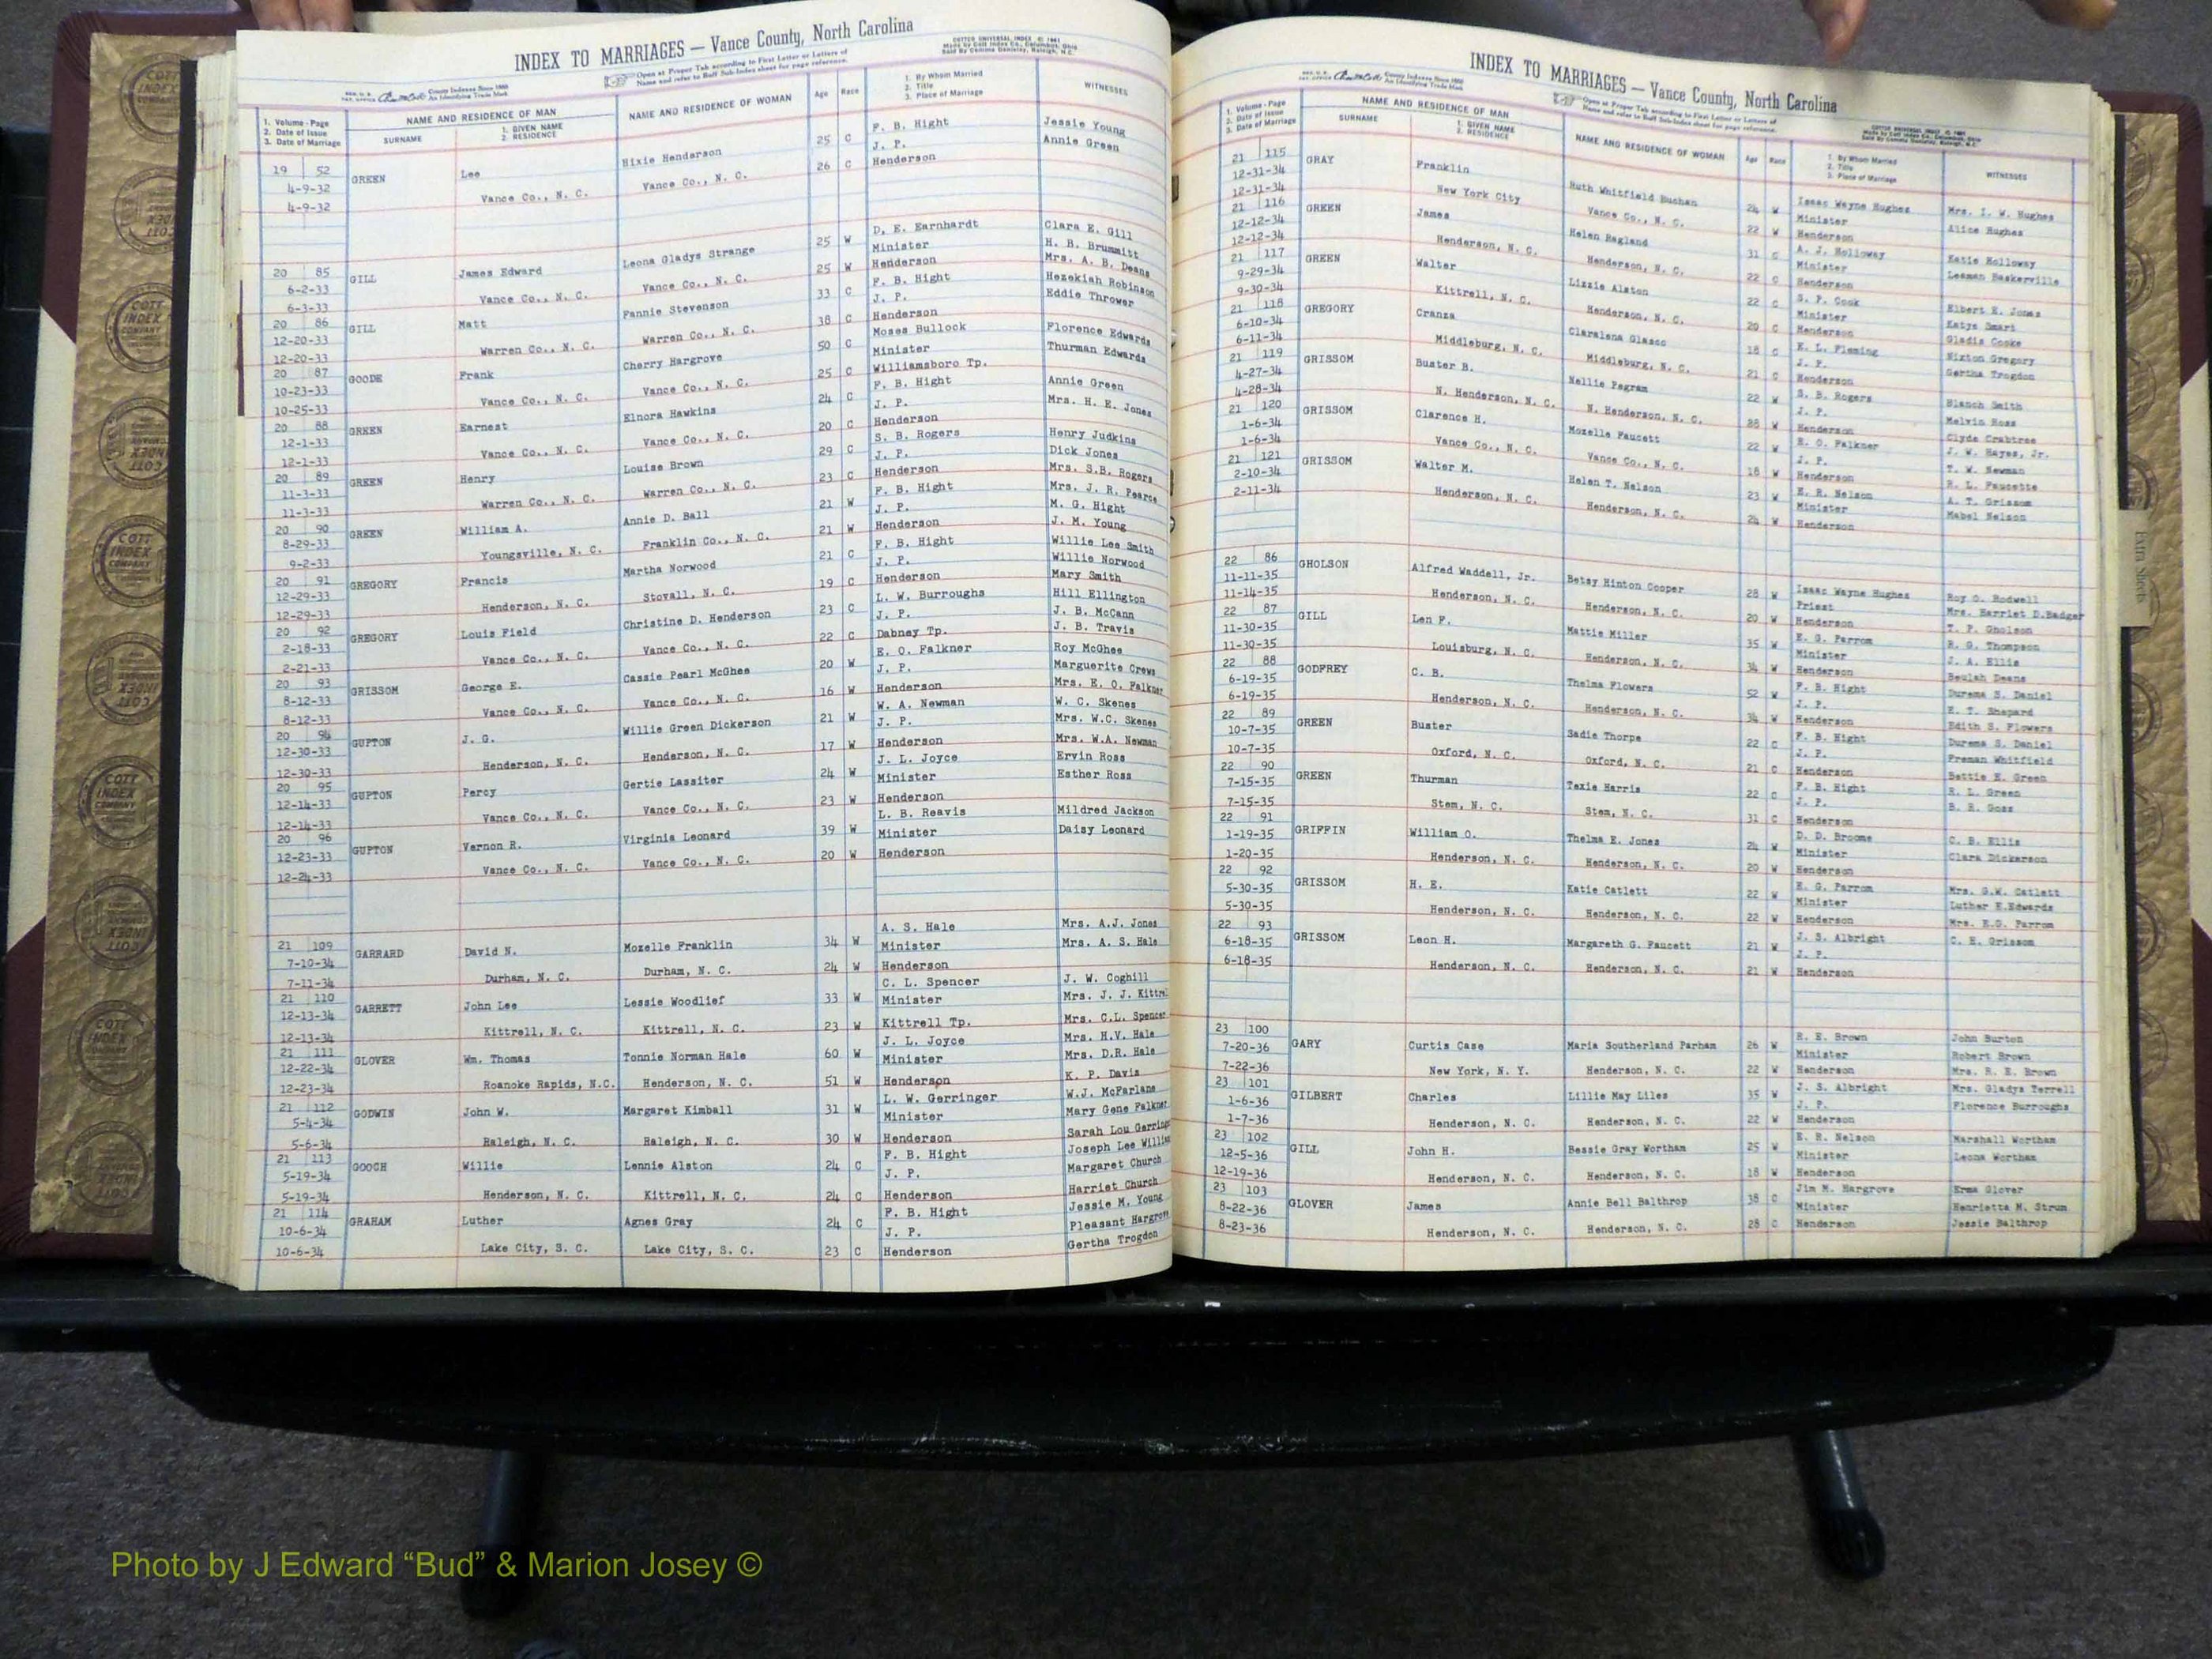 INDEX TO MARRIAGES — Vance County, North Carolina
Open at Proper Tab according to First Letter or Letters of
Name and refer to Buff Sub-Index sheet for page reference.
COTT'S UNIVERSAL INDEX © 1961
Made by Cott Index Co., Columbus, Ohio
County Indexes Since 1888
An Identifying Trade Mark
1. Volume - Page
2. Date of Issue
3. Date of Marriage
NAME AND RESIDENCE OF MAN
SURNAME
1. GIVEN NAME
2. RESIDENCE
NAME AND RESIDENCE OF WOMAN
Age
Race
1. By Whom Married
2. Title
3. Place of Marriage
WITNESSES
19 52 GREEN Lee Hixie Henderson 25 C F. B. Hight Jessie Young
4-9-32 Vance Co., N. C. Vance Co., N. C. 26 C J. P. Annie Green
4-9-32 Henderson
20 85 GILL James Edward Leona Gladys Strange 25 W D. E. Earnhardt Clara E. Gill
6-2-33 Vance Co., N. C. Vance Co., N. C. 25 W Minister H. B. Brummitt
6-3-33 Henderson Mrs. A. B. Deans
20 86 GILL Matt Fannie Stevenson 33 C F. B. Hight Hezekiah Robinson
12-20-33 Warren Co., N. C. Warren Co., N. C. 38 C J. P. Eddie Thrower
12-20-33 Henderson
20 87 GOODE Frank Cherry Hargrove 50 C Moses Bullock Florence Edwards
10-23-33 Vance Co., N. C. Vance Co., N. C. 25 C Minister Thurman Edwards
10-25-33 Williamsboro Tp.
20 88 GREEN Earnest Elnora Hawkins 24 C F. B. Hight Annie Green
12-1-33 Vance Co., N. C. Vance Co., N. C. 20 C J. P. Mrs. H. E. Jones
12-1-33 Henderson
20 89 GREEN Henry Louise Brown 29 C S. B. Rogers Henry Judkins
11-3-33 Warren Co., N. C. Warren Co., N. C. 23 C J. P. Dick Jones
11-3-33 Henderson Mrs. S.B. Rogers
20 90 GREEN William A. Annie D. Ball 21 W F. B. Hight Mrs. J. R. Pearce
8-29-33 Youngsville, N. C. Franklin Co., N. C. 21 W J. P. M. G. Hight
9-2-33 Henderson J. M. Young
20 91 GREGORY Francis Martha Norwood 21 C F. B. Hight Willie Lee Smith
12-29-33 Henderson, N. C. Stovall, N. C. 19 C J. P. Willie Norwood
12-29-33 Henderson Mary Smith
20 92 GREGORY Louis Field Christine D. Henderson 23 C L. W. Burroughs Hill Ellington
2-18-33 Vance Co., N. C. Vance Co., N. C. 22 C J. P. J. B. McCann
2-21-33 Dabney Tp. J. B. Travis
20 93 GRISSOM George E. Cassie Pearl McGhee 20 W E. O. Falkner Roy McGhee
8-12-33 Vance Co., N. C. Vance Co., N. C. 16 W J. P. Marguerite Crews
8-12-33 Henderson Mrs. E. O. Falkner
20 94 GUPTON J. G. Willie Green Dickerson 21 W W. A. Newman W. C. Skenes
12-30-33 Henderson, N. C. Henderson, N. C. 17 W J. P. Mrs. W.C. Skenes
12-30-33 Henderson Mrs. W.A. Newman
20 95 GUPTON Percy Gertie Lassiter 24 W J. L. Joyce Ervin Ross
12-14-33 Vance Co., N. C. Vance Co., N. C. 23 W Minister Esther Ross
12-14-33 Henderson
20 96 GUPTON Vernon R. Virginia Leonard 39 W L. B. Reavis Mildred Jackson
12-23-33 Vance Co., N. C. Vance Co., N. C. 20 W Minister Daisy Leonard
12-24-33 Henderson
21 109 GARRARD David N. Mozelle Franklin 34 W A. S. Hale Mrs. A.J. Jones
7-10-34 Durham, N. C. Durham, N. C. 24 W Minister Mrs. A. S. Hale
7-11-34 Henderson
21 110 GARRETT John Lee Lessie Woodlief 33 W C. L. Spencer J. W. Coghill
12-13-34 Kittrell, N. C. Kittrell, N. C. 23 W Minister Mrs. J. J. Kittrel
12-13-34 Kittrell Tp. Mrs. C.L. Spencer
21 111 GLOVER Wm. Thomas Tonnie Norman Hale 60 W J. L. Joyce Mrs. H.V. Hale
12-22-34 Roanoke Rapids, N.C. Henderson, N. C. 51 W Minister Mrs. D.R. Hale
12-23-34 Henderson K. P. Davis
21 112 GODWIN John W. Margaret Kimball 31 W L. W. Gerringer W.J. McFarlane
5-4-34 Raleigh, N. C. Raleigh, N. C. 30 W Minister Mary Gene Falkner
5-6-34 Henderson Sarah Lou Gerringe
21 113 GOOCH Willie Lennie Alston 24 C F. B. Hight Joseph Lee William
5-19-34 Henderson, N. C. Kittrell, N. C. 24 C J. P. Margaret Church
5-19-34 Henderson Harriet Church
21 114 GRAHAM Luther Agnes Gray 24 C F. B. Hight Jessie M. Young
10-6-34 Lake City, S. C. Lake City, S. C. 23 C J. P. Pleasant Hargrove
10-6-34 Henderson Gertha Trogdon
INDEX TO MARRIAGES — Vance County, North Carolina
Open at Proper Tab according to First Letter or Letters of
Name and refer to Buff Sub-Index sheet for page reference.
County Indexes Since 1888
An Identifying Trade Mark
1. Volume - Page
2. Date of Issue
3. Date of Marriage
NAME AND RESIDENCE OF MAN
SURNAME
1. GIVEN NAME
2. RESIDENCE
NAME AND RESIDENCE OF WOMAN
Age
Race
1. By Whom Married
2. Title
3. Place of Marriage
WITNESSES
21 115 GRAY Franklin Ruth Whitfield Buchan 24 W Isaac Wayne Hughes Mrs. I. W. Hughes
12-31-34 New York City Vance Co., N. C. 22 W Minister Alice Hughes
12-31-34 Henderson
21 116 GREEN James Helen Ragland 31 C A. J. Holloway Katie Holloway
12-12-34 Henderson, N. C. Henderson, N. C. 22 C Minister Leaman Baskerville
12-12-34 Henderson
21 117 GREEN Walter Lizzie Alston 22 C S. P. Cook Elbert E. Jones
9-29-34 Kittrell, N. C. Henderson, N. C. 20 C Minister Katye Smart
9-30-34 Henderson Gladis Cooke
21 118 GREGORY Cranza Claralena Glasco 18 C K. L. Fleming Nixton Gregory
6-10-34 Middleburg, N. C. Middleburg, N. C. 21 C J. P. Gertha Trogdon
6-11-34 Henderson
21 119 GRISSOM Buster B. Nellie Pegram 22 W S. B. Rogers Blanch Smith
4-27-34 N. Henderson, N. C. N. Henderson, N. C. 28 W J. P. Melvin Ross
4-28-34 Henderson Clyde Crabtree
21 120 GRISSOM Clarence H. Mozelle Faucett 22 W E. O. Falkner J. W. Hayes, Jr.
1-6-34 Vance Co., N. C. Vance Co., N. C. 18 W J. P. T. W. Newman
1-6-34 Henderson R. L. Faucette
21 121 GRISSOM Walter M. Helen T. Nelson 23 W E. R. Nelson A. T. Grissom
2-10-34 Henderson, N. C. Henderson, N. C. 24 W Minister Mabel Nelson
2-11-34 Henderson
22 86 GHOLSON Alfred Waddell, Jr. Betsy Hinton Cooper 28 W Isaac Wayne Hughes Roy O. Rodwell
11-11-35 Henderson, N. C. Henderson, N. C. 20 W Priest Mrs. Harriet D.Badger
11-14-35 Henderson T. P. Gholson
22 87 GILL Len F. Mattie Miller 35 W E. G. Parrom R. G. Thompson
11-30-35 Louisburg, N. C. Henderson, N. C. 34 W Minister J. A. Ellis
11-30-35 Henderson Beulah Deans
22 88 GODFREY C. B. Thelma Flowers 52 W F. B. Hight Durema S. Daniel
6-19-35 Henderson, N. C. Henderson, N. C. 34 W J. P. E. T. Shepard
6-19-35 Henderson Edith S. Flowers
22 89 GREEN Buster Sadie Thorpe 22 C F. B. Hight Durema S. Daniel
10-7-35 Oxford, N. C. Oxford, N. C. 21 C J. P. Freman Whitfield
10-7-35 Henderson Bettie H. Green
22 90 GREEN Thurman Texie Harris 22 C F. B. Hight R. L. Green
7-15-35 Stem, N. C. Stem, N. C. 31 C J. P. B. R. Goss
7-15-35 Henderson
22 91 GRIFFIN William O. Thelma E. Jones 24 W D. D. Broome C. B. Ellis
1-19-35 Henderson, N. C. Henderson, N. C. 20 W Minister Clara Dickerson
1-20-35 Henderson
22 92 GRISSOM H. E. Katie Catlett 22 W E. G. Parrom Mrs. G.W. Catlett
5-30-35 Henderson, N. C. Henderson, N. C. 22 W Minister Luther E.Edwards
5-30-35 Henderson Mrs. E.G. Parrom
22 93 GRISSOM Leon H. Margareth G. Faucett 21 W J. S. Albright C. H. Grissom
6-18-35 Henderson, N. C. Henderson, N. C. 21 W J. P.
6-18-35 Henderson
23 100 GARY Curtis Case Maria Southerland Parham 26 W R. E. Brown John Burton
7-20-36 New York, N. Y. Henderson, N. C. 22 W Minister Robert Brown
7-22-36 Henderson Mrs. R. E. Brown
23 101 GILBERT Charles Lillie May Liles 35 W J. S. Albright Mrs. Gladys Terrell
1-6-36 Henderson, N. C. Henderson, N. C. 22 W J. P. Florence Burroughs
1-7-36 Henderson
23 102 GILL John H. Bessie Gray Wortham 25 W E. R. Nelson Marshall Wortham
12-5-36 Henderson, N. C. Henderson, N. C. 18 W Minister Leona Wortham
12-19-36 Henderson
23 103 GLOVER James Annie Bell Balthrop 38 C Jim M. Hargrove Erma Glover
8-22-36 Henderson, N. C. Henderson, N. C. 28 C Minister Henrietta M. Strum
8-23-36 Henderson Jessie Balthrop
Extra Sheets
COTT INDEX COMPANY
Photo by J Edward “Bud” & Marion Josey ©